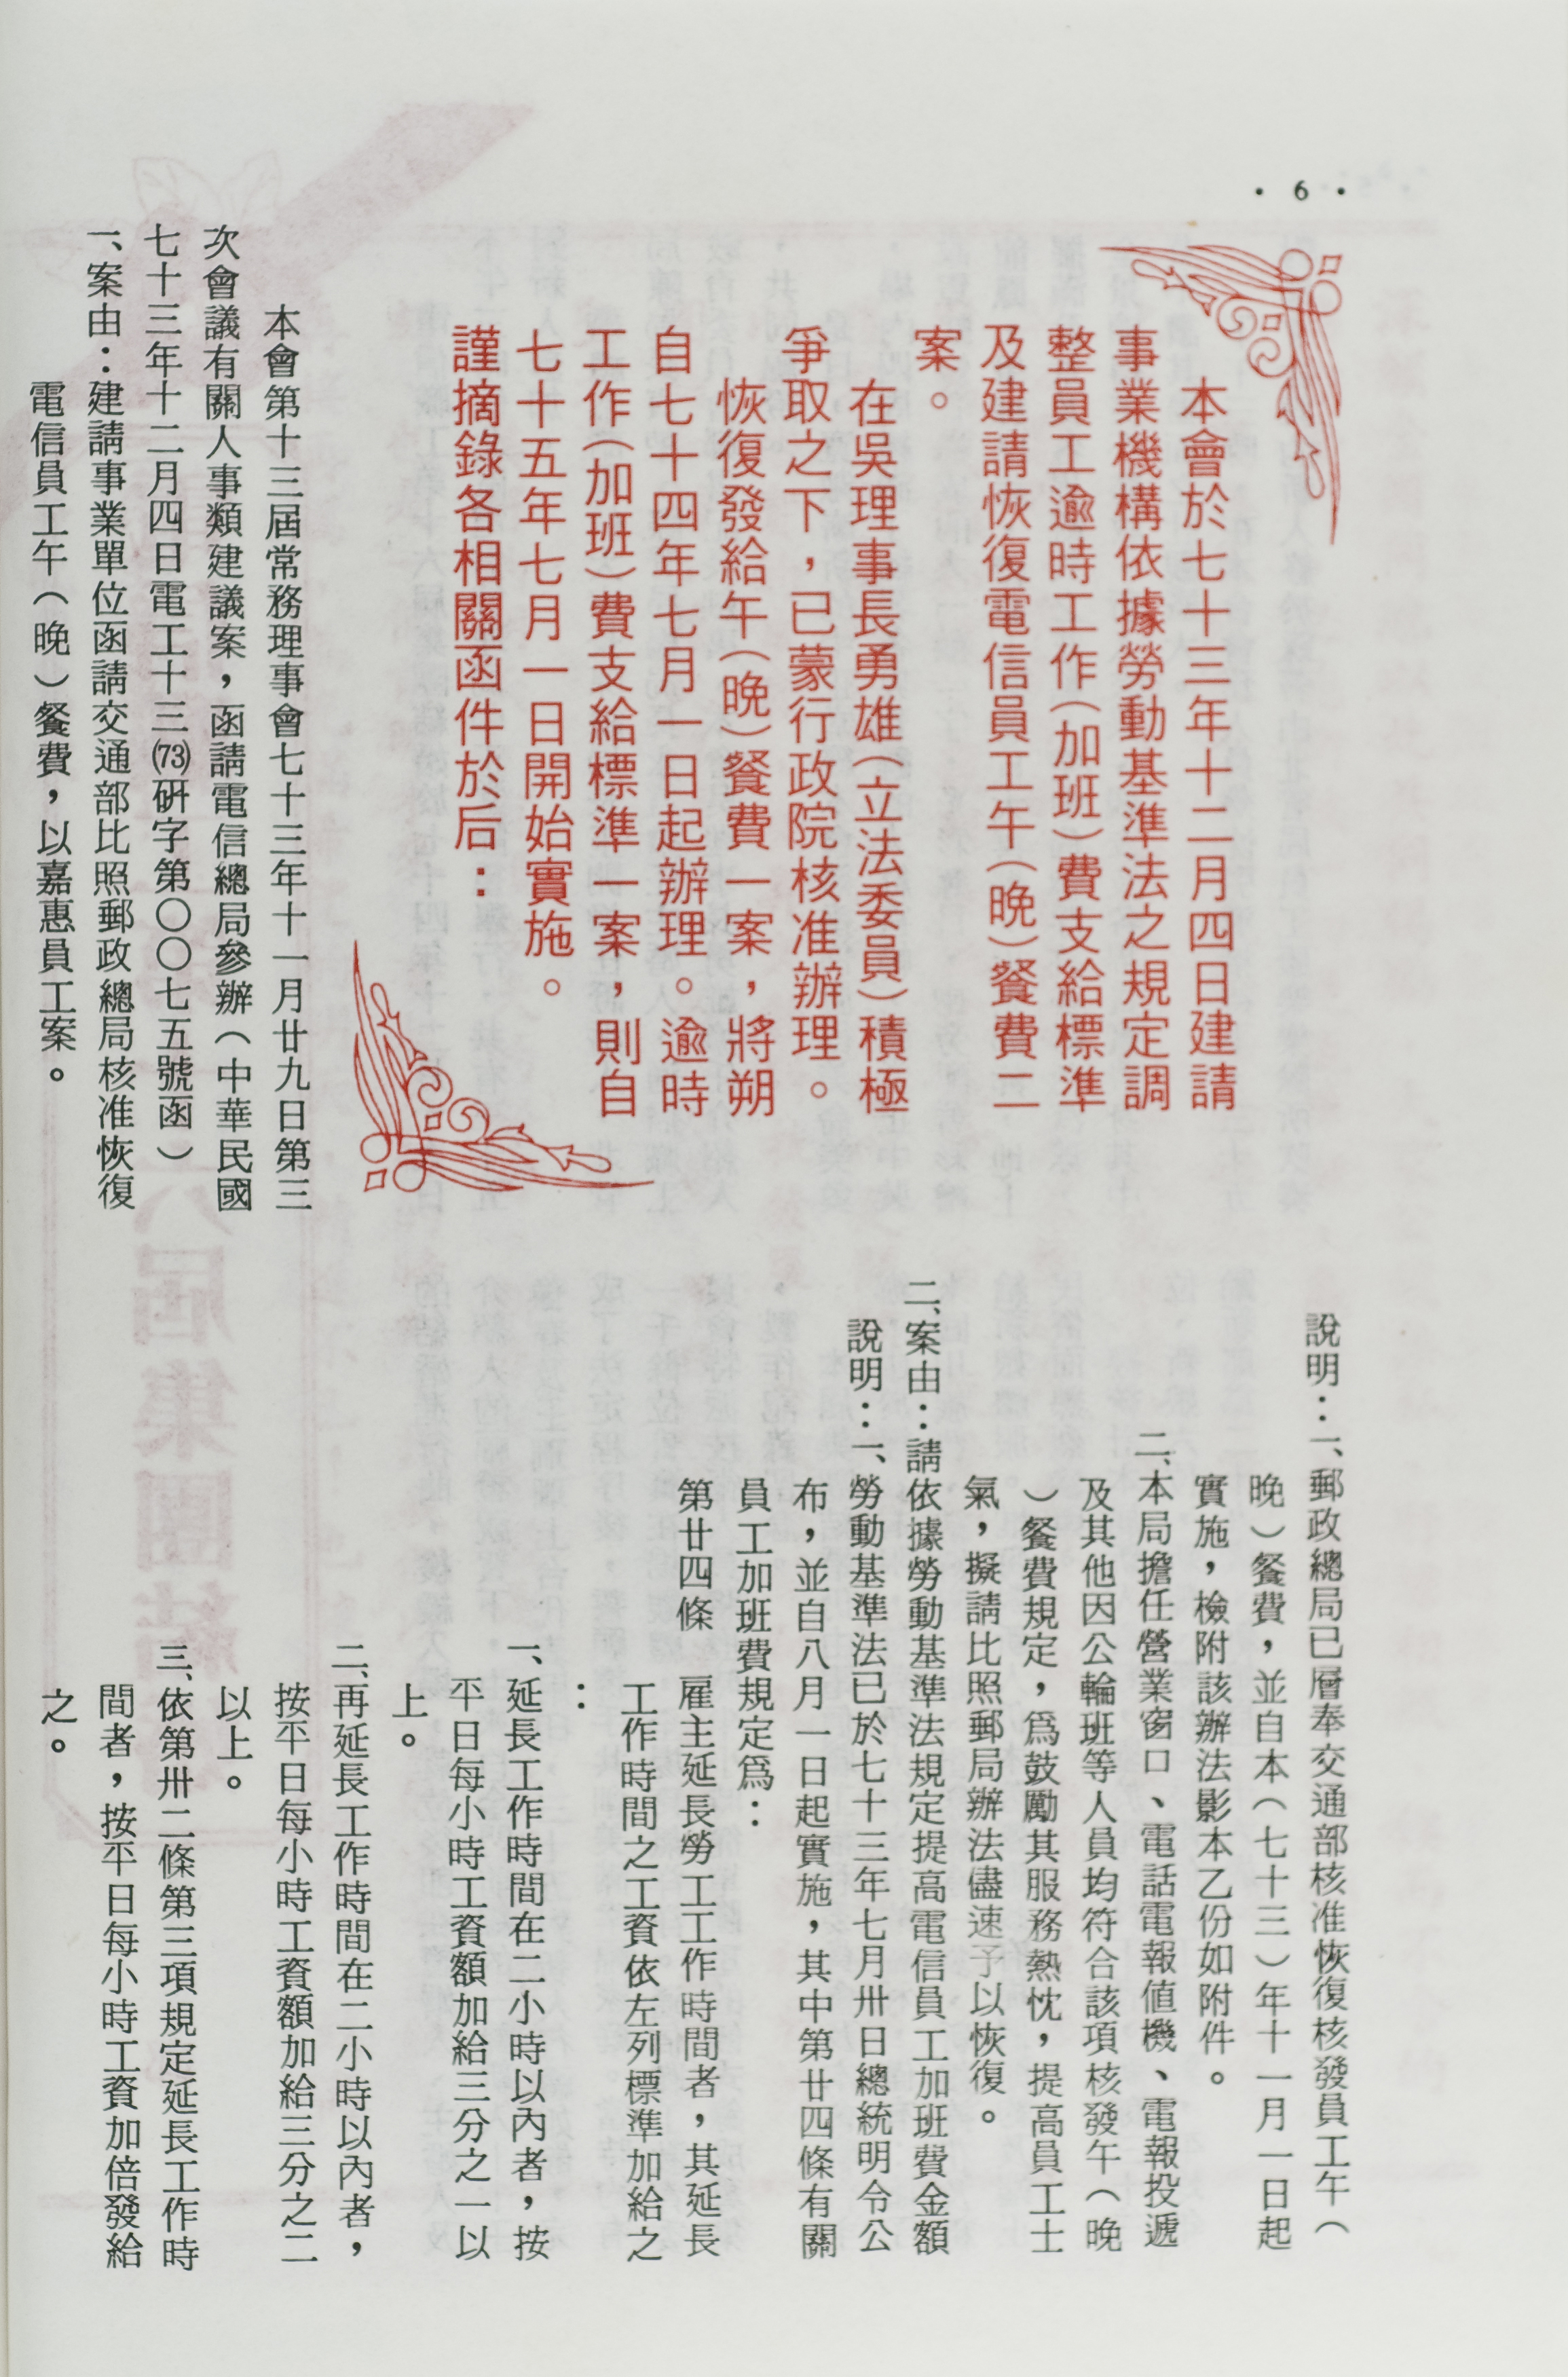 · 6 ·
本會於七十三年十二月四日建請
事業機構依據勞動基準法之規定調
整員工逾時工作(加班)費支給標準
及建請恢復電信員工午(晚)餐費二
案。
在吳理事長勇雄(立法委員)積極
爭取之下，已蒙行政院核准辦理。
恢復發給午(晚)餐費一案，將朔
自七十四年七月一日起辦理。逾時
工作(加班)費支給標準一案，則自
七十五年七月一日開始實施。
謹摘錄各相關函件於后：
本會第十三屆常務理事會七十三年十一月廿九日第三
次會議有關人事類建議案，函請電信總局參辦（中華民國
七十三年十二月四日電工十三(73)硏字第〇〇七五號函）
一、案由：建請事業單位函請交通部比照郵政總局核准恢復
電信員工午（晚）餐費，以嘉惠員工案。
說明：一、郵政總局已層奉交通部核准恢復核發員工午（
晚）餐費，並自本（七十三）年十一月一日起
實施，檢附該辦法影本乙份如附件。
二、本局擔任營業窗口、電話電報值機、電報投遞
及其他因公輪班等人員均符合該項核發午（晚
）餐費規定，爲鼓勵其服務熱忱，提高員工士
氣，擬請比照郵局辦法儘速予以恢復。
二、案由：請依據勞動基準法規定提高電信員工加班費金額
說明：一、勞動基準法已於七十三年七月卅日總統明令公
布，並自八月一日起實施，其中第廿四條有關
員工加班費規定爲：
第廿四條　雇主延長勞工工作時間者，其延長
工作時間之工資依左列標準加給之
：
一、延長工作時間在二小時以內者，按
平日每小時工資額加給三分之一以
上。
二、再延長工作時間在二小時以內者，
按平日每小時工資額加給三分之二
以上。
三、依第卅二條第三項規定延長工作時
間者，按平日每小時工資加倍發給
之。